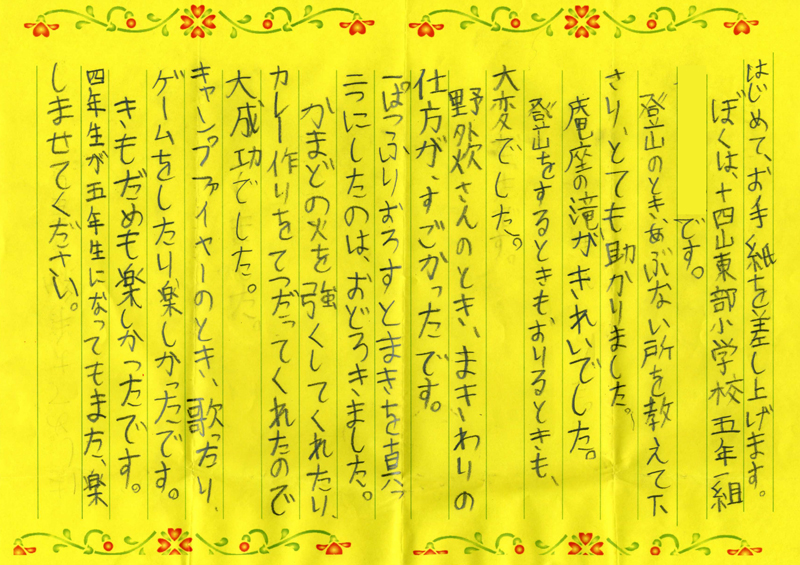 はじめて、お手紙を差し上げます。
ぼくは、十四山東部小学校五年一組
です。
登山のとき、あぶない所を教えて下
さり、とても助かりました。
庵座の滝がきれいでした。
登山をするときもおりるときも、
大変でした。
野外炊さんのとき、まきわりの
仕方が、すごかったです。
一ぱつふりおろすとまきを真っ
二つにしたのは、おどろきました。
かまどの火を強くしてくれたり、
カレー作りをてつだってくれたので
大成功でした。
キャンプファイヤーのとき、歌ったり、
ゲームをしたり楽しかったです。
きもだめも楽しかったです。
四年生が五年生になってもまた、楽
しませてください。